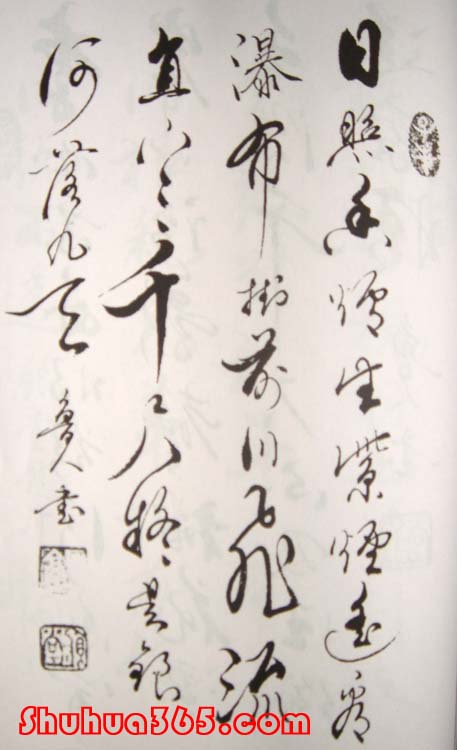 日照香爐生紫煙遙看
瀑布掛前川飛流
直下三千尺疑是銀
河落九天 魯人書
Shuhua365.com